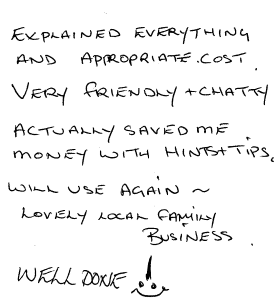 EXPLAINED EVERYTHING
AND APPROPRIATE COST.
VERY FRIENDLY + CHATTY
ACTUALLY SAVED ME
MONEY WITH HINTS+TIPS.
WILL USE AGAIN ~
LOVELY LOCAL FAMILY
BUSINESS.
WELL DONE!